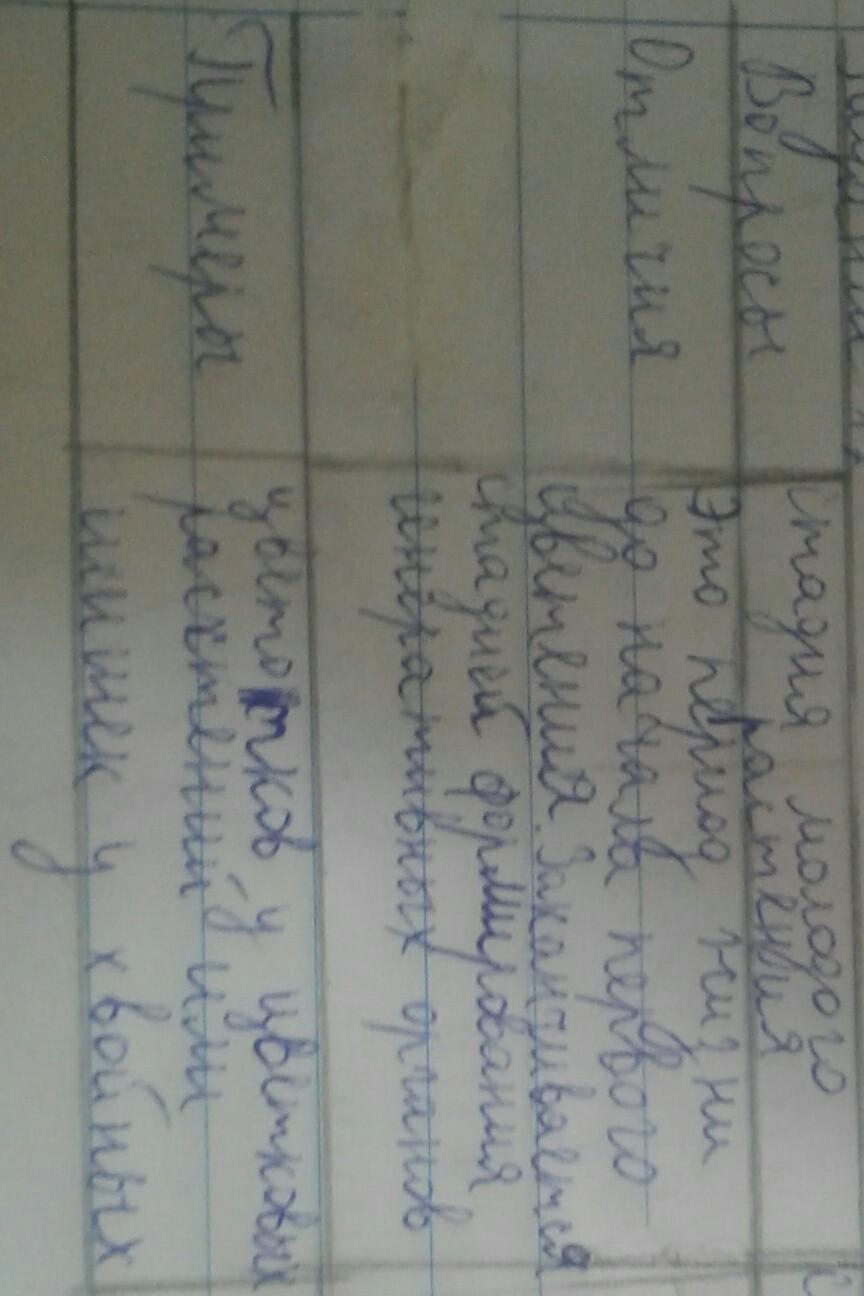 Вопросы
стадия молодого
растения
Отличия
Это период жизни
до начала первого
цветения. Заканчивается
стадией формирования
генеративных органов
Примеры
цветотков у цветковых
расстений или
шишек у хвойных